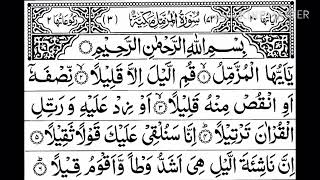 اٰيَاتُهَا ٢٠ (٧٣) سُوْرَةُ الْمُزَّمِّلِ مَكِّيَّةٌ (٣) رُكُوْعَاتُهَا ٢
بِسْمِ اللّٰهِ الرَّحْمٰنِ الرَّحِيْمِ
يٰۤاَيُّهَا الْمُزَّمِّلُ ۙ۝١ قُمِ الَّيْلَ اِلَّا قَلِيْلًا ۙ۝٢ نِّصْفَهٗۤ
اَوِ انْقُصْ مِنْهُ قَلِيْلًا ۙ۝٣ اَوْ زِدْ عَلَيْهِ وَ رَتِّلِ
الْقُرْاٰنَ تَرْتِيْلًا ؕ۝٤ اِنَّا سَنُلْقِيْ عَلَيْكَ قَوْلًا ثَقِيْلًا ۝٥
اِنَّ نَاشِئَةَ الَّيْلِ هِيَ اَشَدُّ وَطْاً وَّ اَقْوَمُ قِيْلًا ؕ۝٦